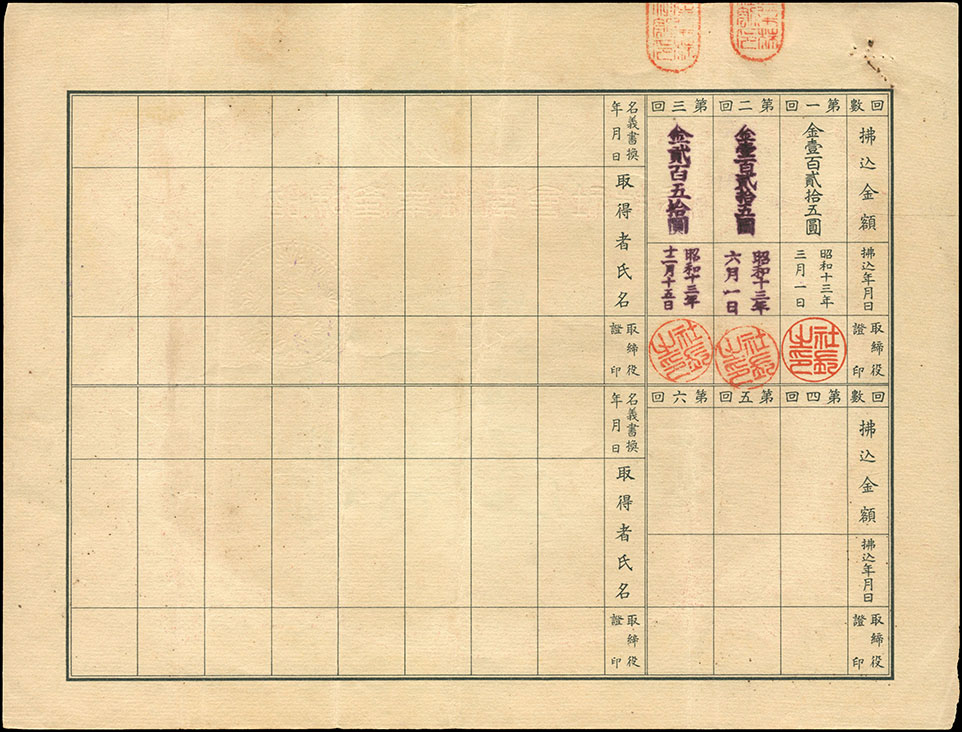 回數
第一回
第二回
第三回
拂込金額
金壹百貳拾五圓
金壹百貳拾五圓
金貳百五拾圓
拂込年月日
昭和十三年
三月一日
昭和十三年
六月一日
昭和十三年
十二月十五日
取締役
證印
社長之印
社長之印
社長之印
名義書換
年月日
取得者氏名
取締役
證印
回數
第四回
第五回
第六回
拂込金額
拂込年月日
取締役
證印
名義書換
年月日
取得者氏名
取締役
證印